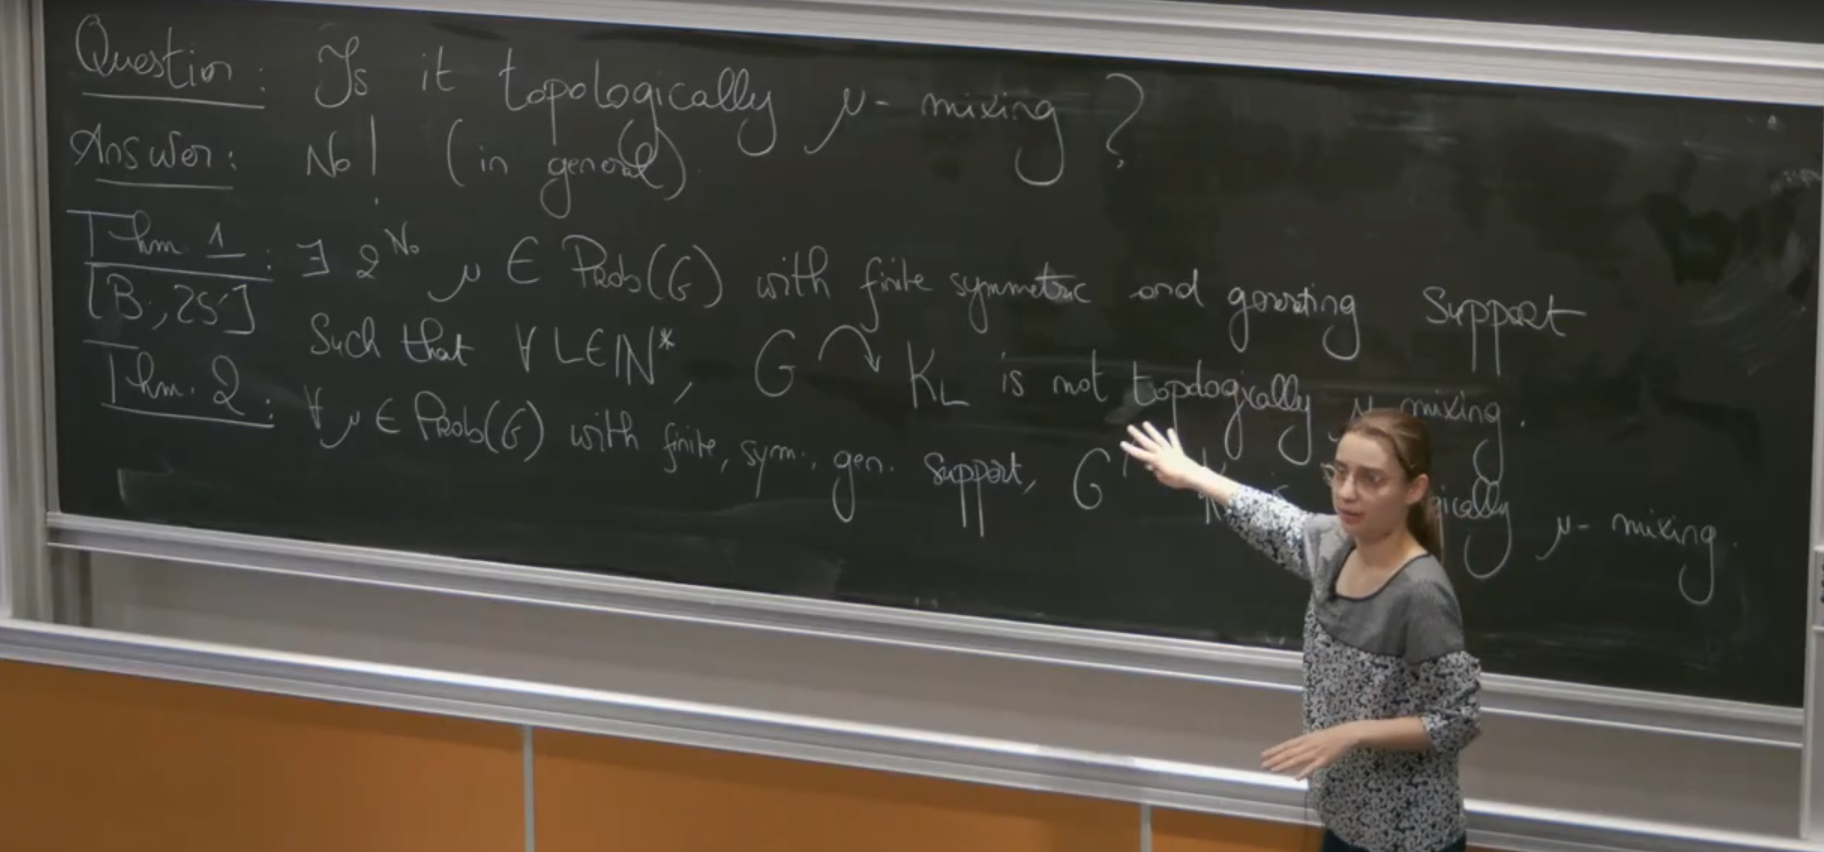 Question: Is it topologically μ-mixing?
Answer: No! (in general).
Thm. 1 [B, 25]: ∃ 2^ℵ₀ μ ∈ Prob(G) with finite symmetric and generating support
Such that ∀ L ∈ ℕ*, G ↷ K_L is not topologically μ-mixing.
Thm. 2: ∀ μ ∈ Prob(G) with finite, sym., gen. support, G gically μ-mixing.